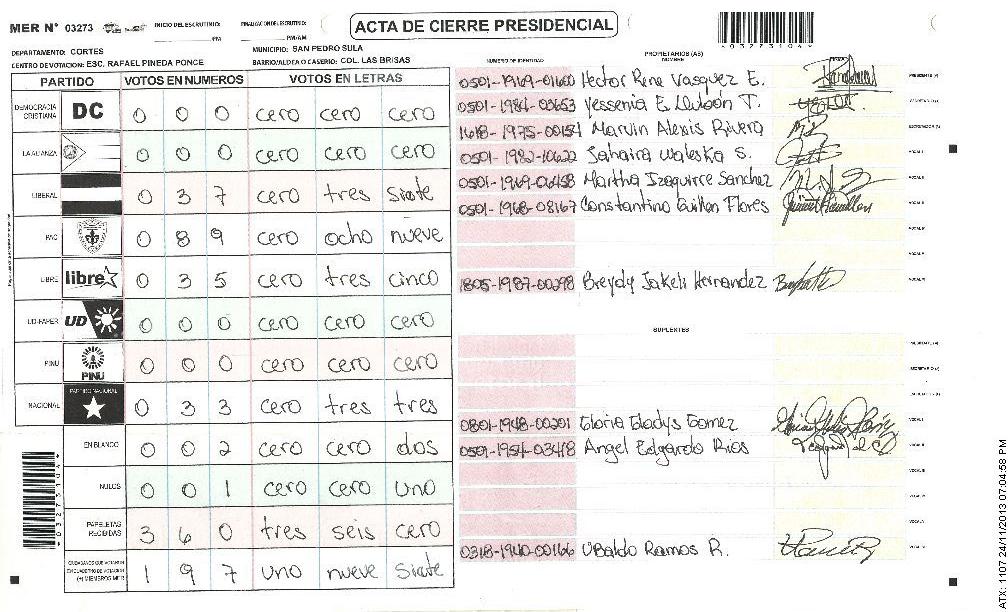 MER N° 03273
INICIO DEL ESCRUTINIO: PM
FINALIZACION DEL ESCRUTINIO: PM/AM
ACTA DE CIERRE PRESIDENCIAL
DEPARTAMENTO: CORTES
MUNICIPIO: SAN PEDRO SULA
CENTRO DE VOTACION: ESC. RAFAEL PINEDA PONCE
BARRIO/ALDEA O CASERIO: COL. LAS BRISAS
PARTIDO VOTOS EN NUMEROS VOTOS EN LETRAS
DEMOCRACIA CRISTIANA DC 0 0 0 cero cero cero
LA ALIANZA 0 0 0 cero cero cero
LIBERAL 0 3 7 cero tres siete
PAC 0 8 9 cero ocho nueve
LIBRE libre 0 3 5 cero tres cinco
UD-FAPER UD 0 0 0 cero cero cero
PINU PINU 0 0 0 cero cero cero
NACIONAL PARTIDO NACIONAL 0 3 3 cero tres tres
EN BLANCO 0 0 2 cero cero dos
NULOS 0 0 1 cero cero uno
PAPELETAS RECIBIDAS 3 6 0 tres seis cero
CIUDADANOS QUE VOTARON EN CUADERNO DE VOTACION (+) MIEMBROS MER 1 9 7 uno nueve siete
03273104
03273104
NUMERO DE IDENTIDAD
PROPIETARIOS (AS)
NOMBRE
FIRMA
0501-1969-01660 Hector Rene Vasquez E.
0501-1984-00653 Yessenia E.
1618-1975-00154 Marvin Alexis Rivera
0501-1982-10622 Jahaira Waleska S.
0501-1969-06458 Martha Izaguirre Sanchez
0501-1968-08167 Constantino Guillen Flores
1805-1987-00298 Breydy Jakeli Hernandez
SUPLENTES
0801-1948-00201 Gloria Gladys Gomez
0501-1954-03418 Angel Edgardo Rios
0318-1940-00166 Ubaldo Ramos R.
ATX: 1107 24/11/2013 07:04:58 PM